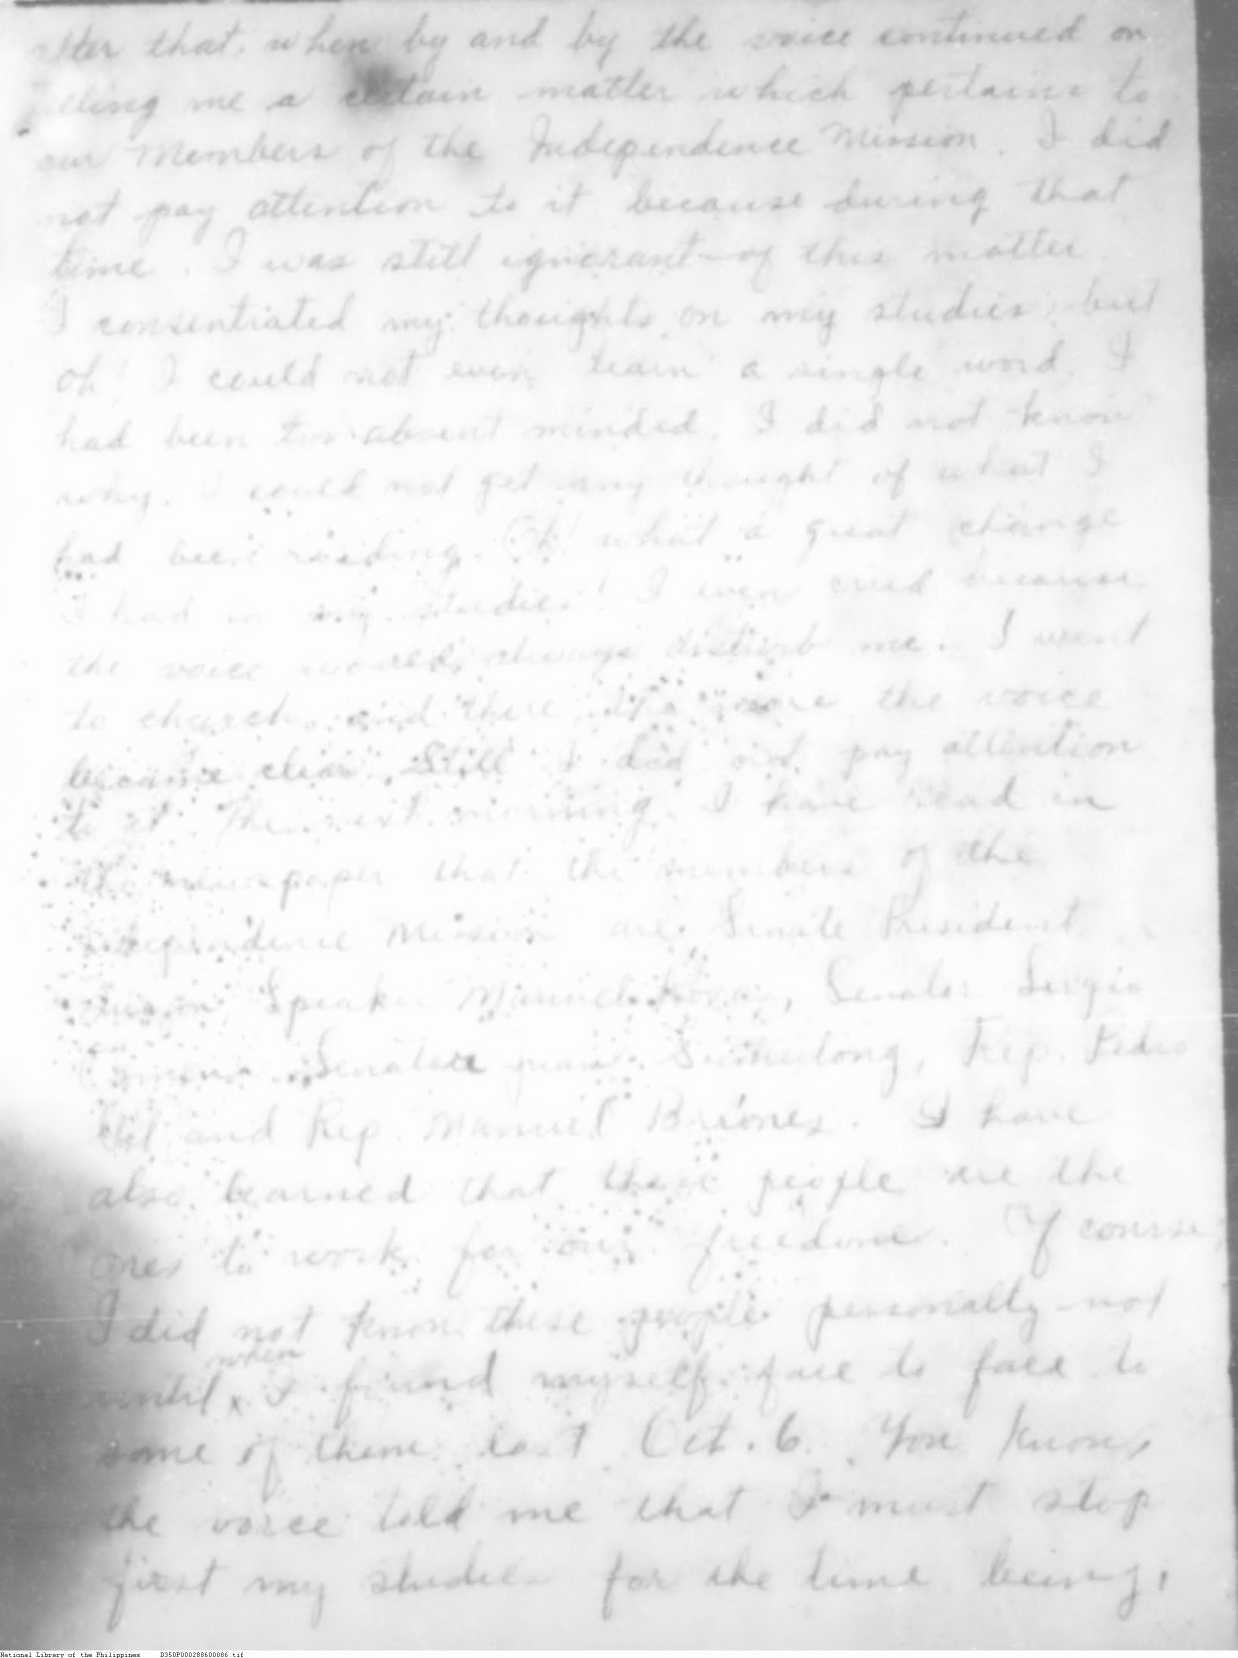 after that. when by and by the voice continued on
telling me a certain matter which pertains to
our Members of the Independence Mission. I did
not pay attention to it because during that
time. I was still ignorant of this matter
I consentrated my thoughts on my studies, but
oh! I could not even learn a single word. I
had been too absent minded. I did not know
why. I could not get any thought of what I
had been reading. Oh! what a great change
I had in my studies! I even cried because
the voice would always disturb me. I went
to church, and there the more the voice
became clear. Still I did not pay attention
to it. The next morning, I have read in
the newspaper that the members of the
Independence Mission are Senate President
Quezon, Speaker Manuel Roxas, Senator Sergio
Osmena, Senator Juan Sumulong, Rep. Pedro
and Rep. Manuel Briones. I have
also learned that these people are the
ones to work for our freedom. Of course,
I did not know these people personally not
until when I found myself face to face to
some of them last Oct. 6. You know,
the voice told me that I must stop
first my studies for the time being,
National Library of the Philippines D350P000288600086.tif